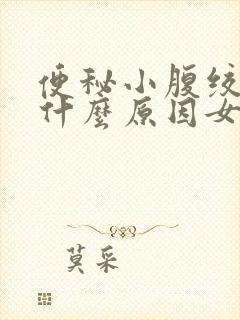 便秘小腹绞
什麼原因女
莫采